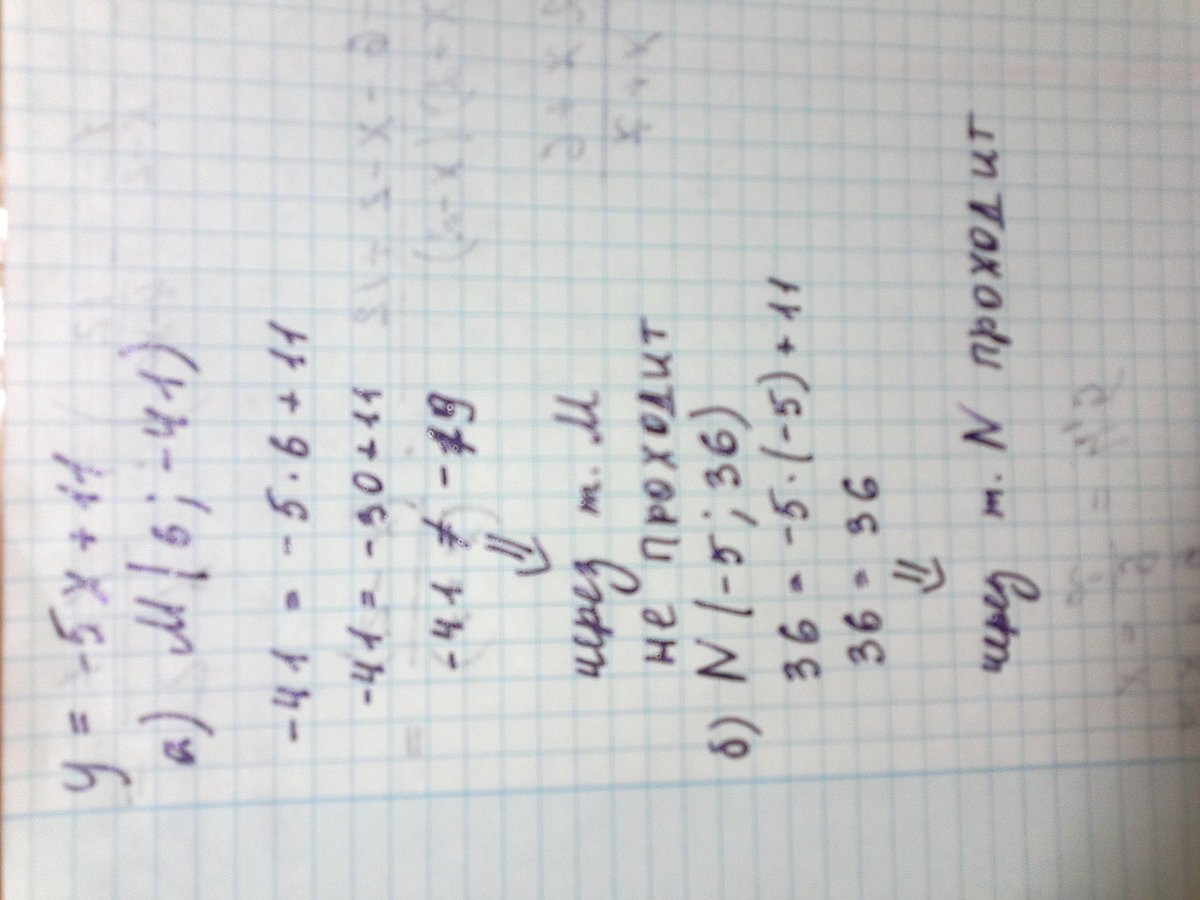 y = -5x + 11
а) M(6; -41)
-41 = -5·6 + 11
-41 = -30+11
-41 ≠ -19
⇓
через т. M
не проходит
б) N(-5; 36)
36 = -5·(-5) + 11
36 = 36
⇓
через т. N проходит